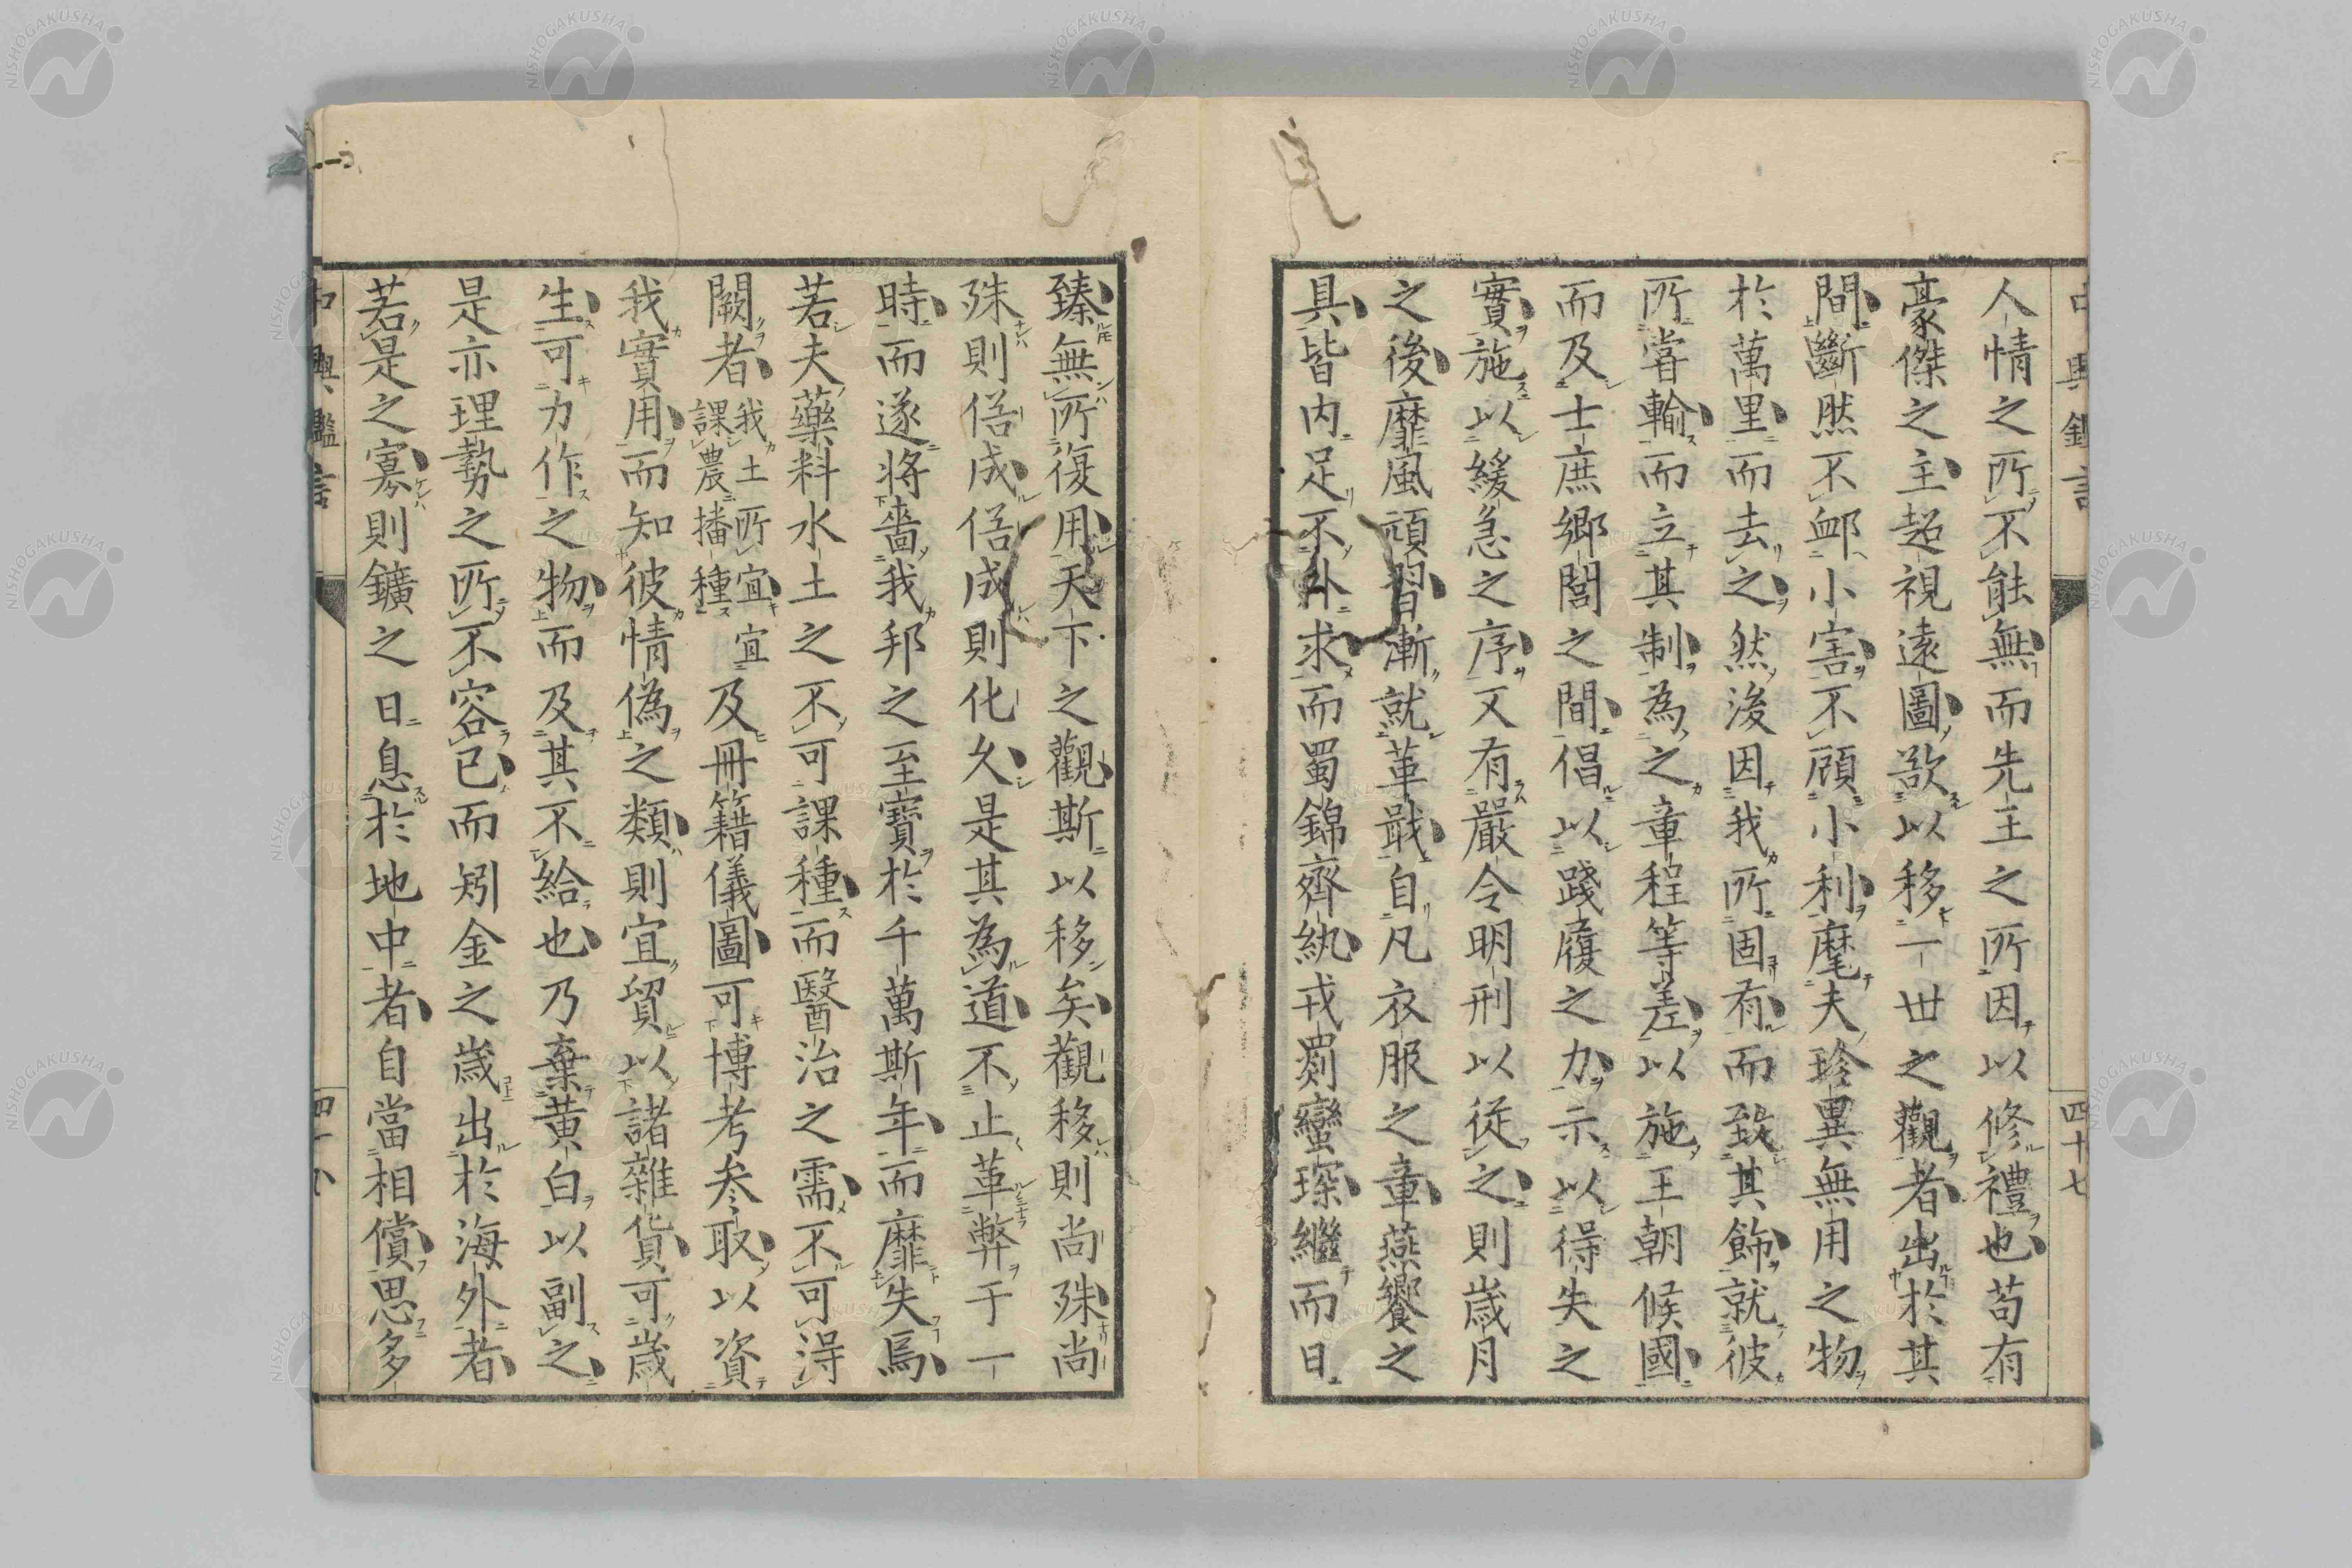 人情之所不能無而先王之所因以修禮也苟有
豪傑之主超視遠圖欲以移一世之觀者出於其
間斷然不卹小害不顧小利麾夫珍異無用之物
於萬里而去之然後因我所固有而致其飾就彼
所嘗輸而立其制為之章程等差以施王朝候國
而及士庶鄉閭之間倡以踐履之力示以得失之
實施以緩急之序又有嚴令明刑以従之則歳月
之後靡風頑習漸就革戢自凡衣服之章燕饗之
具皆内足不外求而蜀錦齊紈戎罽蠻琛繼而日
四十七
臻無所復用天下之觀斯以移矣觀移則尚殊尚
殊則俗成俗成則化久是其為道不止革弊于一
時而遂將嗇我邦之至寶於千萬斯年而靡失焉
若夫藥料水土之不可課種而醫治之需不可得
闕者我土所宜宜課農播種及冊籍儀圖可博考参取以資
我實用而知彼情偽之類則宜貿以諸雜貨可歳
生可力作之物而及其不給也乃棄黄白以副之
是亦理勢之所不容已而矧金之歳出於海外者
若是之寡則鑛之日息於地中者自當相償思多
中興鑑言
NISHOGAKUSHA